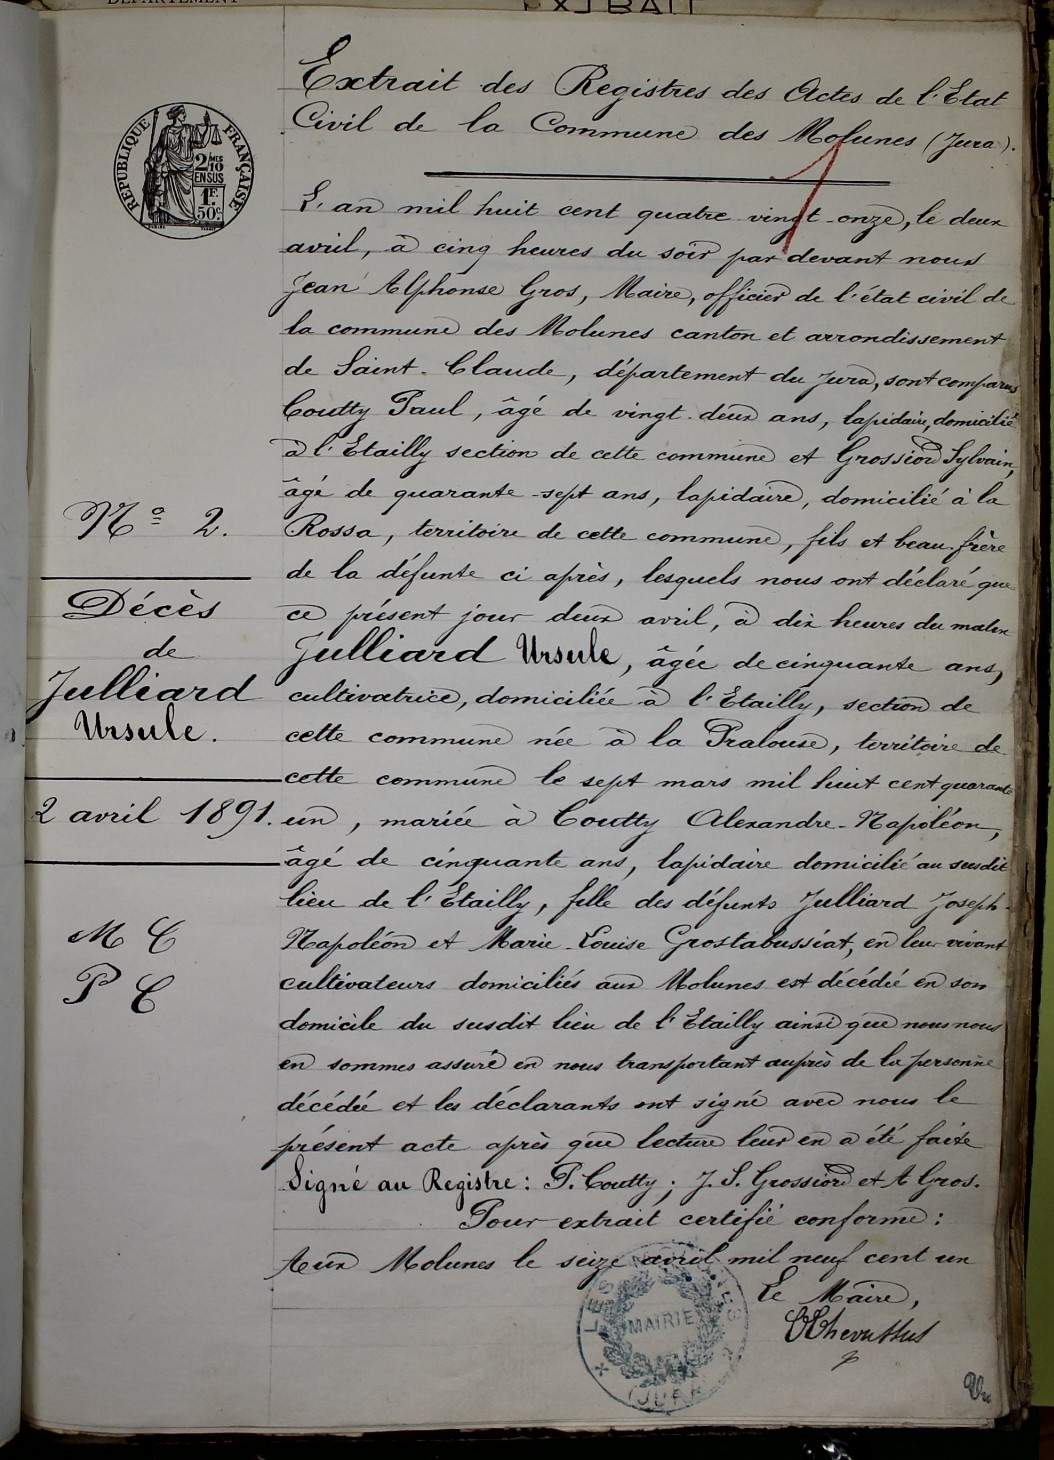 DÉPARTEMENT
EXTRAIT
Extrait des Registres des Actes de l'Etat
Civil de la Commune des Molunes (Jura).
RÉPUBLIQUE FRANÇAISE
2/10 MES
EN SUS
1F.
50c
L'an mil huit cent quatre vingt-onze, le deux
avril, à cinq heures du soir par devant nous
Jean Alphonse Gros, Maire, officier de l'état civil de
la commune des Molunes canton et arrondissement
de Saint-Claude, département du Jura, sont comparus
Coutty Paul, âgé de vingt-deux ans, lapidaire, domicilié
à l'Etailly section de cette commune et Grossiord Sylvain,
âgé de quarante-sept ans, lapidaire, domicilié à la
Rossa, territoire de cette commune, fils et beau-frère
de la défunte ci après, lesquels nous ont déclaré que
ce présent jour deux avril, à dix heures du matin
Julliard Ursule, âgée de cinquante ans,
cultivatrice, domiciliée à l'Etailly, section de
cette commune née à la Pralouse, territoire de
cette commune le sept mars mil huit cent quarante
un, mariée à Coutty Alexandre-Napoléon,
âgé de cinquante ans, lapidaire domicilié au susdit
lieu de l'Etailly, fille des défunts Julliard Joseph-
Napoléon et Marie-Louise Grostabussiat, en leur vivant
cultivateurs domiciliés aux Molunes est décédée en son
domicile du susdit lieu de l'Etailly ainsi que nous nous
en sommes assuré en nous transportant auprès de la personne
décédée et les déclarants ont signé avec nous le
présent acte après que lecture leur en a été faite
Signé au Registre: P. Coutty; J. S. Grossiord et A Gros.
Pour extrait certifié conforme:
Aux Molunes le seize avril mil neuf cent un
Le Maire,
MAIRIE
(JURA)
Vu
No 2.
Décès
de
Julliard
Ursule.
2 avril 1891.
M C
P C